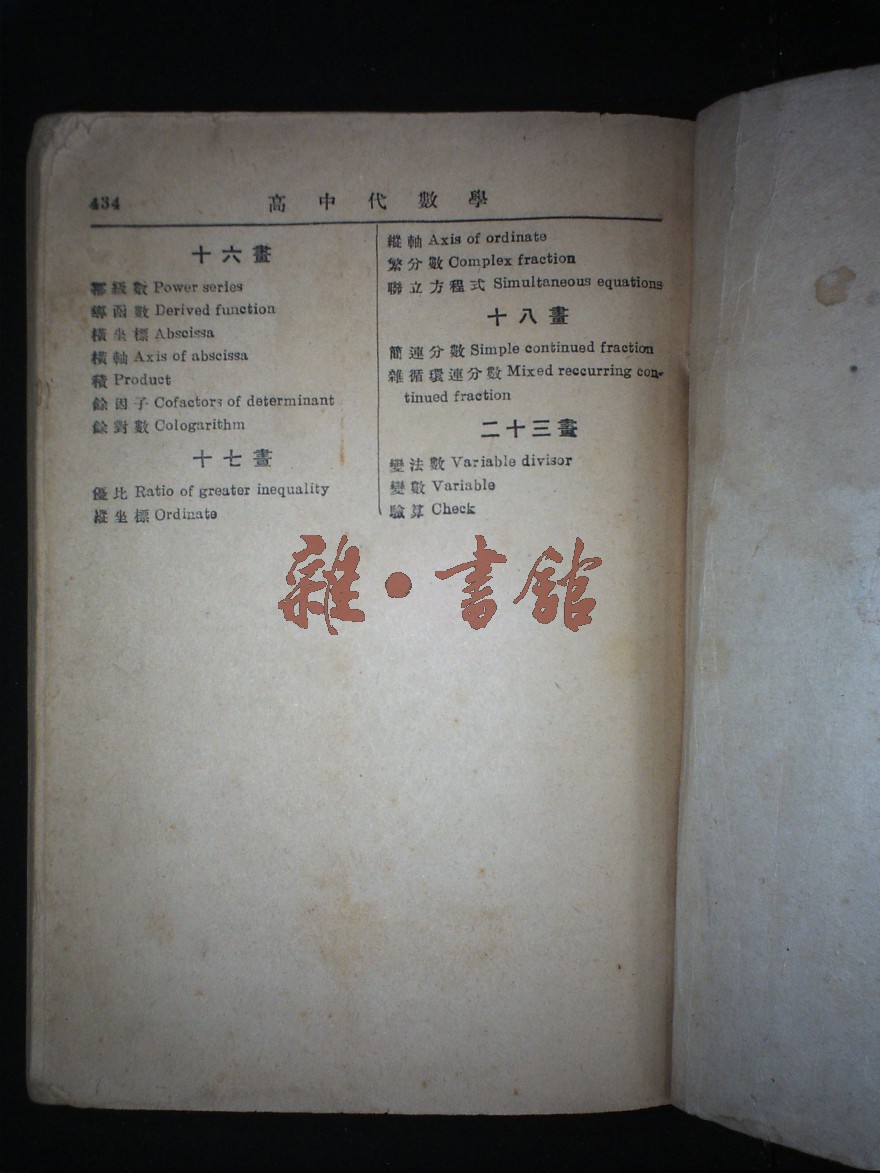 434
高中代數學
十六畫
冪級數 Power series
導函數 Derived function
橫坐標 Abscissa
橫軸 Axis of abscissa
積 Product
餘因子 Cofactors of determinant
餘對數 Cologarithm
十七畫
優比 Ratio of greater inequality
縱坐標 Ordinate
縱軸 Axis of ordinate
繁分數 Complex fraction
聯立方程式 Simultaneous equations
十八畫
簡連分數 Simple continued fraction
雜循環連分數 Mixed reccurring con-
tinued fraction
二十三畫
變法數 Variable divisor
變數 Variable
驗算 Check
雜·書館